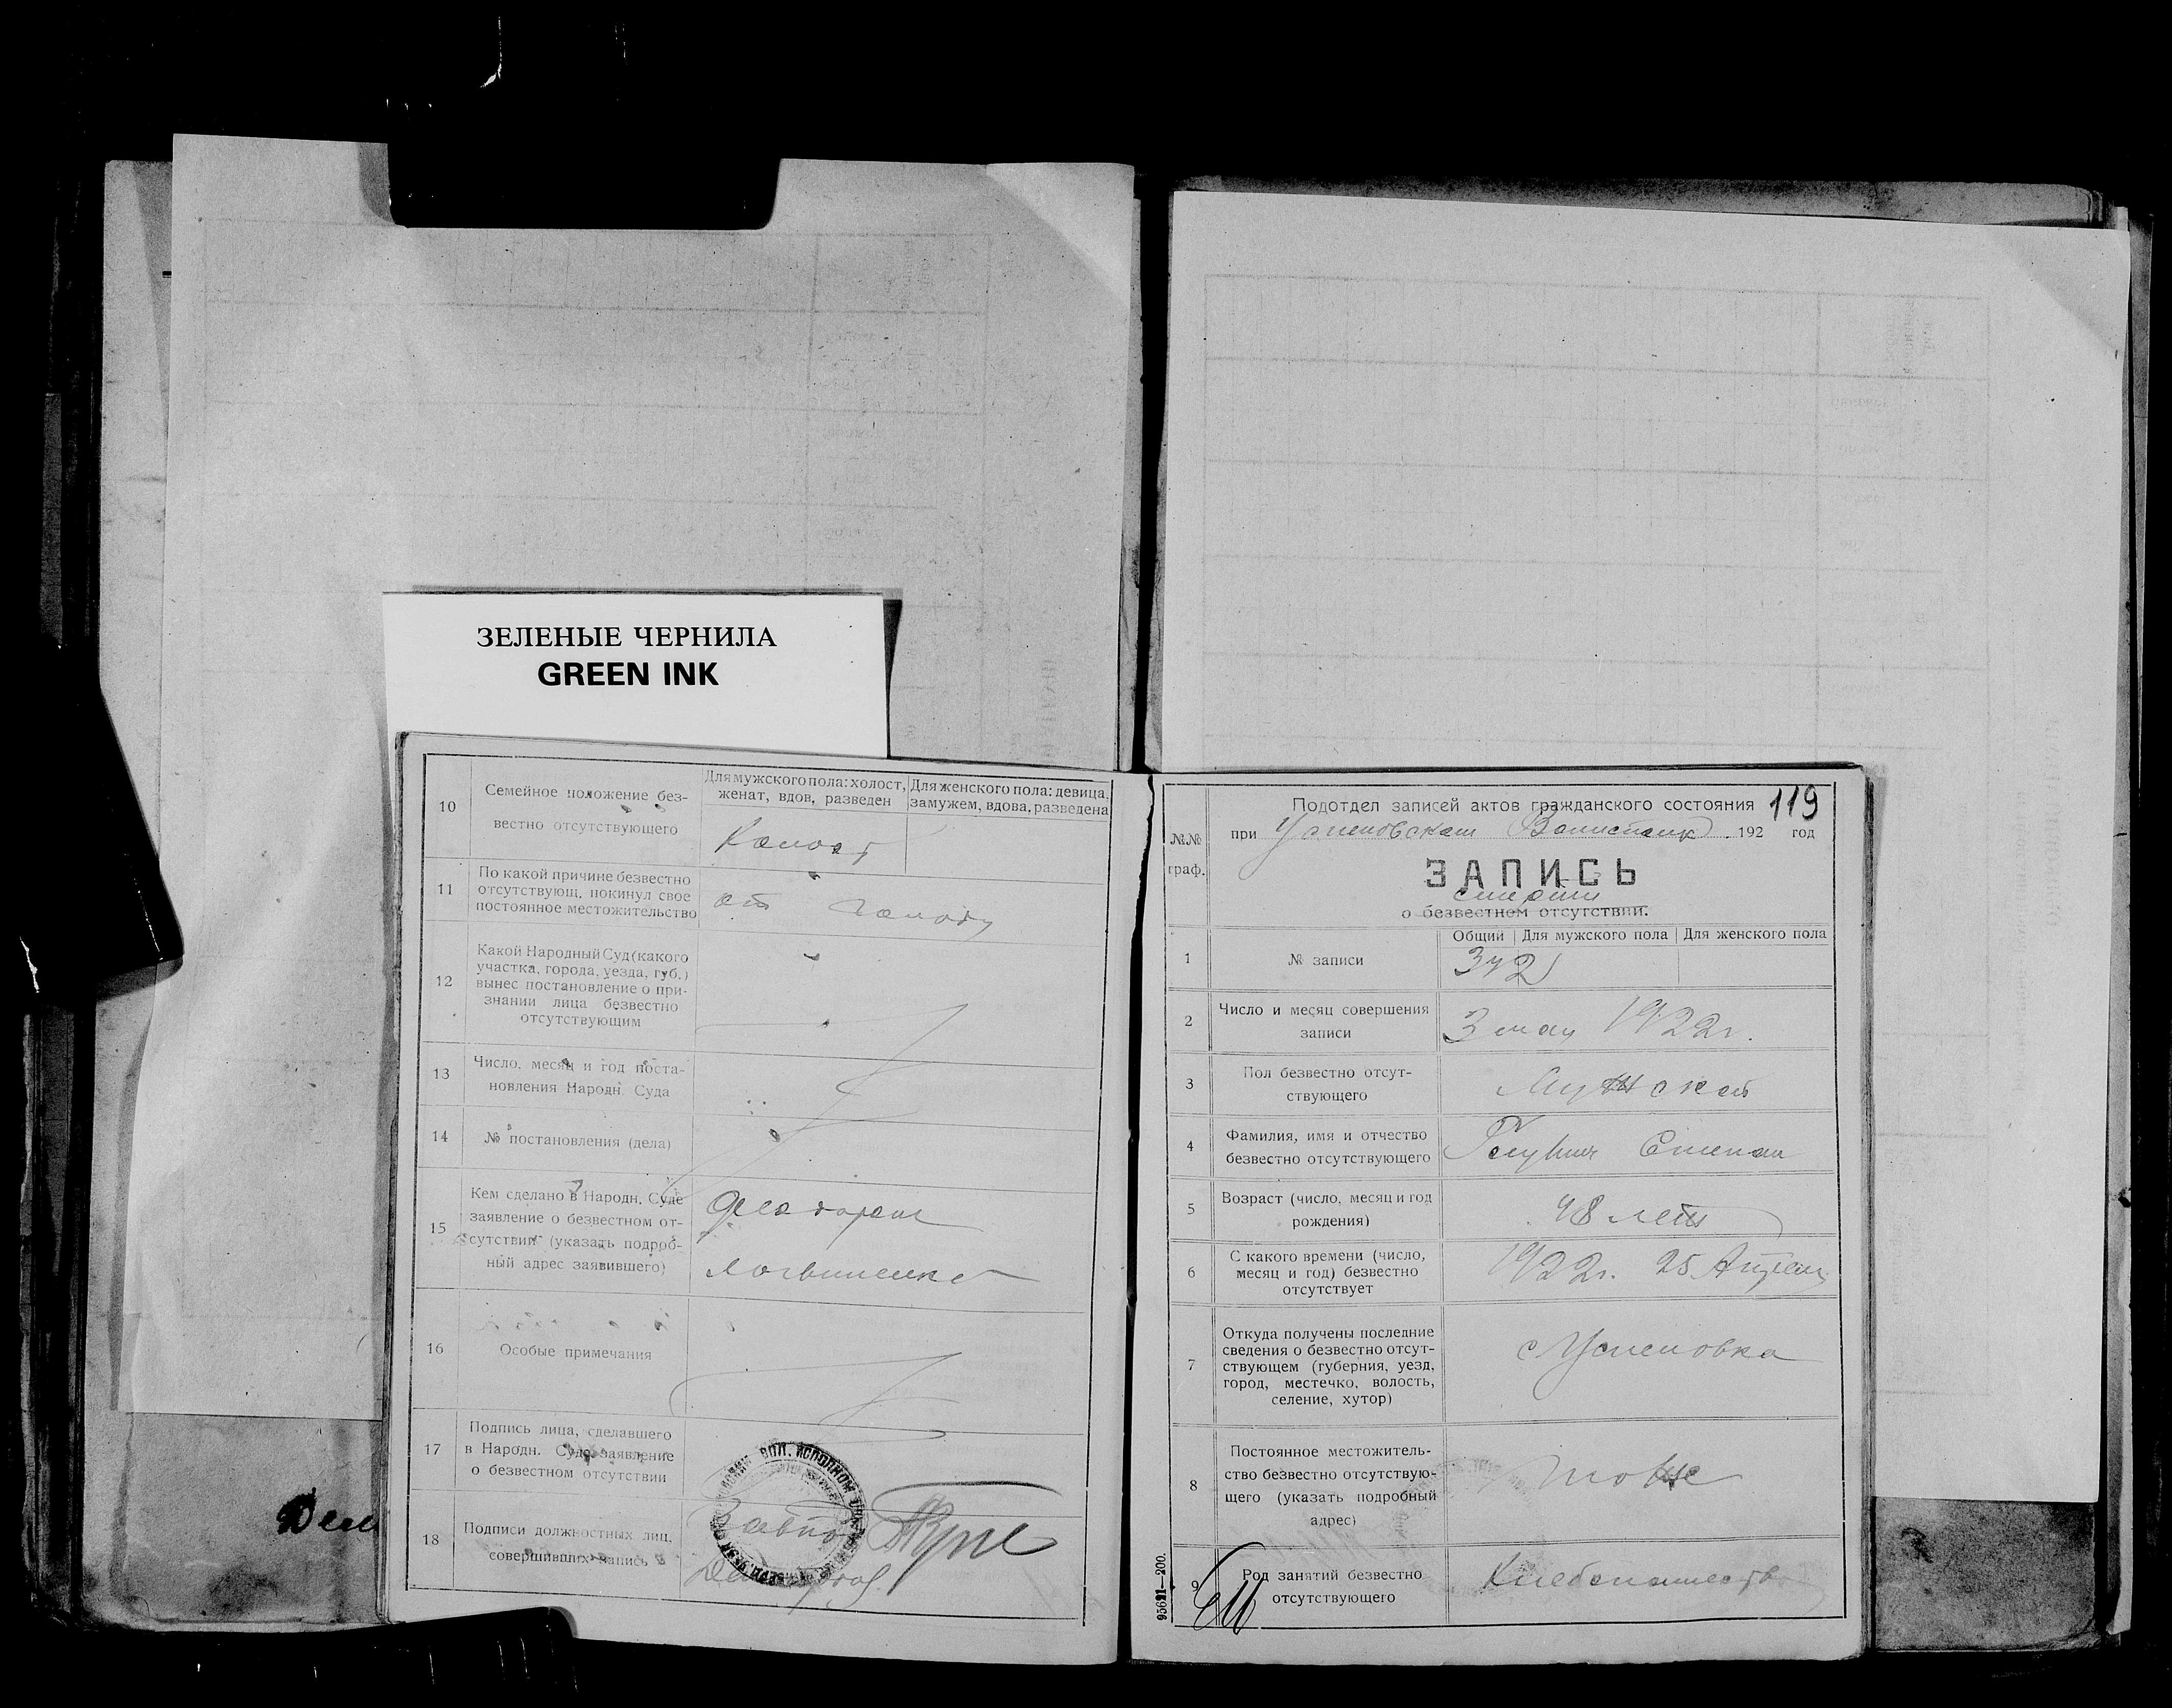 ЗЕЛЕНЫЕ ЧЕРНИЛА
GREEN INK
10
Семейное положение без-
вестно отсутствующего
Для мужского пола: холост,
женат, вдов, разведен
Для женского пола: девица,
замужем, вдова, разведена
Холост
11
По какой причине безвестно
отсутствующ. покинул свое
постоянное местожительство
от голоду
12
Какой Народный Суд (какого
участка, города, уезда, губ.)
вынес постановление о при-
знании лица безвестно
отсутствующим
13
Число, месяц и год поста-
новления Народн. Суда
14
№ постановления (дела)
15
Кем сделано в Народн. Суде
заявление о безвестном от-
сутствии (указать подроб-
ный адрес заявившего)
16
Особые примечания
17
Подпись лица, сделавшего
в Народн. Суде заявление
о безвестном отсутствии
18
Подписи должностных лиц,
совершивших запись
119
Подотдел записей актов гражданского состояния
при Успеновском 192 год
№№
граф.
ЗАПИСЬ
смерти
о безвестном отсутствии.
Общий | Для мужского пола | Для женского пола
1
№ записи
372
2
Число и месяц совершения
записи
3 мая 1922г.
3
Пол безвестно отсут-
ствующего
Мужской
4
Фамилия, имя и отчество
безвестно отсутствующего
Степан
5
Возраст (число, месяц и год
рождения)
48 лет
6
С какого времени (число,
месяц и год) безвестно
отсутствует
1922г. 25 Апреля
7
Откуда получены последние
сведения о безвестно отсут-
ствующем (губерния, уезд,
город, местечко, волость,
селение, хутор)
с Успеновка
8
Постоянное местожитель-
ство безвестно отсутствую-
щего (указать подробный
адрес)
тоже
9
Род занятий безвестно
отсутствующего
Хлебопашество
95621—200.